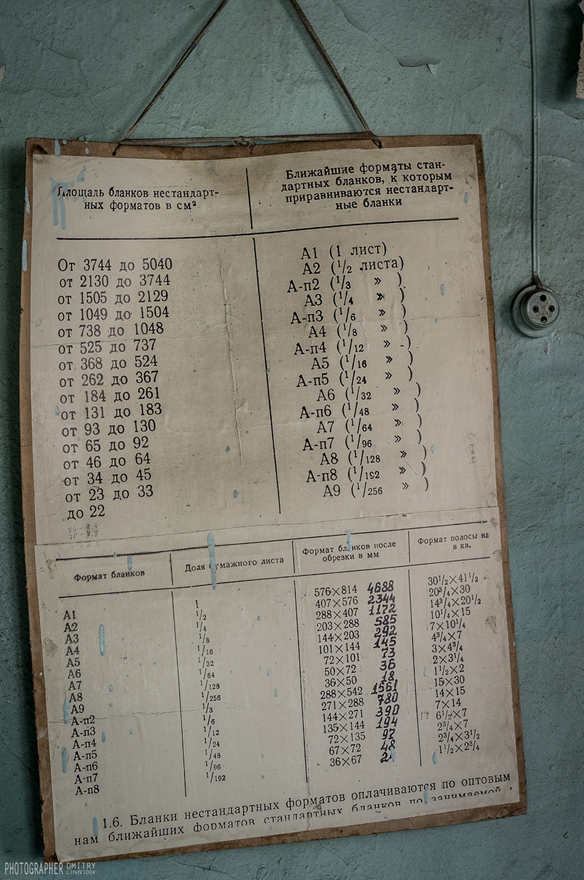 Площадь бланков нестандарт-
ных форматов в см²
Ближайшие форматы стан-
дартных бланков, к которым
приравниваются нестандарт-
ные бланки
От 3744 до 5040 А1 (1 лист)
от 2130 до 3744 А2 (1/2 листа)
от 1505 до 2129 А-п2 (1/3 » )
от 1049 до 1504 А3 (1/4 » )
от 738 до 1048 А-п3 (1/6 » )
от 525 до 737 А4 (1/8 » )
от 368 до 524 А-п4 (1/12 » )
от 262 до 367 А5 (1/16 » )
от 184 до 261 А-п5 (1/24 » )
от 131 до 183 А6 (1/32 » )
от 93 до 130 А-п6 (1/48 » )
от 65 до 92 А7 (1/64 » )
от 46 до 64 А-п7 (1/96 » )
от 34 до 45 А8 (1/128 » )
от 23 до 33 А-п8 (1/192 » )
до 22 А9 (1/256 » )
Формат бланков
Доля бумажного листа
Формат бланков после
обрезки в мм
Формат полосы на
в кв.
А1 1 576×814 4688 30 1/2×41 1/2
А2 1/2 407×576 2344 20 3/4×30
А3 1/4 288×407 1172 14 3/4×20 1/2
А4 1/8 203×288 585 10 1/4×15
А5 1/16 144×203 292 7×10 1/4
А6 1/32 101×144 145 4 3/4×7
А7 1/64 72×101 73 3×4 3/4
А8 1/128 50×72 36 2×3 1/4
А9 1/256 36×50 18 1 1/2×2
А-п2 1/3 288×542 1561 15×30
А-п3 1/6 271×288 780 14×15
А-п4 1/12 144×271 390 7×14
А-п5 1/24 135×144 194 6 1/2×7
А-п6 1/48 72×135 97 2 3/4×7
А-п7 1/96 67×72 48 2 3/4×3 1/2
А-п8 1/192 36×67 1 1/2×2 3/4
1.6. Бланки нестандартных форматов оплачиваются по оптовым
нам ближайших форматов стандартных бланков по занимаемой
PHOTOGRAPHER DMITRY